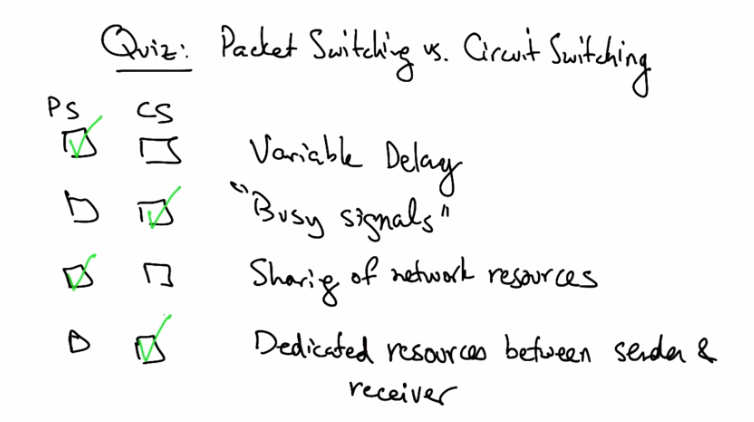 Quiz: Packet Switching vs. Circuit Switching
PS CS
Variable Delay
"Busy signals"
Sharig of network resources
Dedicated resources between sender &
receiver